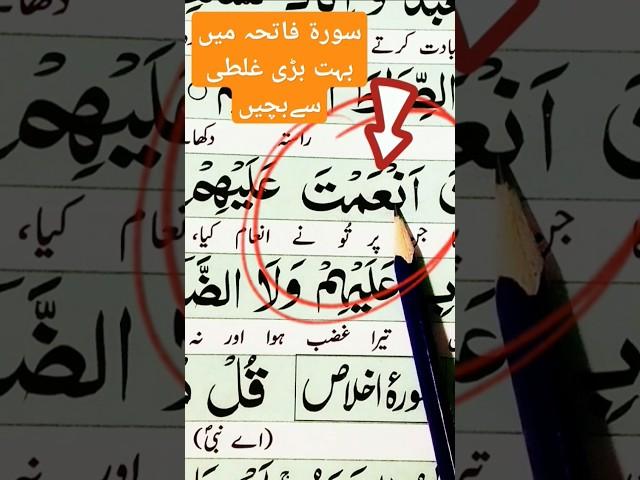 سورۃ فاتحہ میں
بہت بڑی غلطی
سے بچیں
بادت کرتے
راستہ دکھا
اَنْعَمْتَ عَلَيْهِمْ
جن پر تُو نے انعام کیا،
عَلَيْهِمْ وَلَا الضَّ
تیرا غضب ہوا اور نہ
سورۂ اخلاص قُلْ
(اے نبیؐ)